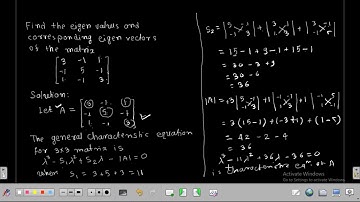 Find the eigen values and
corresponding eigen vectors
of the matrix
[3 -1 1
-1 5 -1
1 -1 3]
Solution:
Let A = [3 -1 1
-1 5 -1
1 -1 3]
The general characteristic equation
for 3×3 matrix is
λ³ - S₁λ² + S₂λ - |A| = 0
when S₁ = 3+5+3 = 11
S₂ = |5 -1 -1 3| + |3 1 1 3| + |3 -1 -1 5|
= 15-1 + 9-1 + 15-1
= 30-3+9
= 30-6
= 36
|A| = +3|5 -1 -1 3| +1|-1 -1 1 3| +1|-1 5 1 -1|
= 3(15-1) + (-3+1) + (1-5)
= 42 - 2 - 4
= 36
λ³ - 11λ² + 36λ - 36 = 0
is characteristic eqn. of A
Activate Windows
Go to Settings to activate Windows.